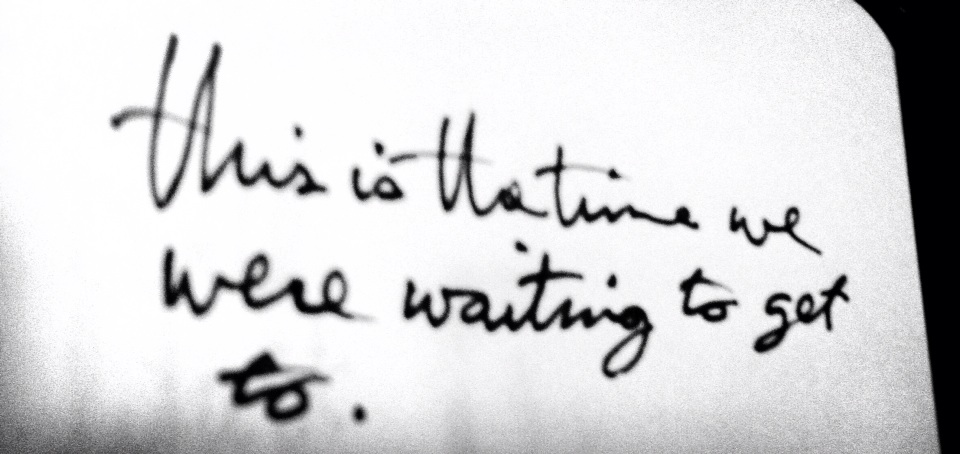 this is the time we
were waiting to get
to.